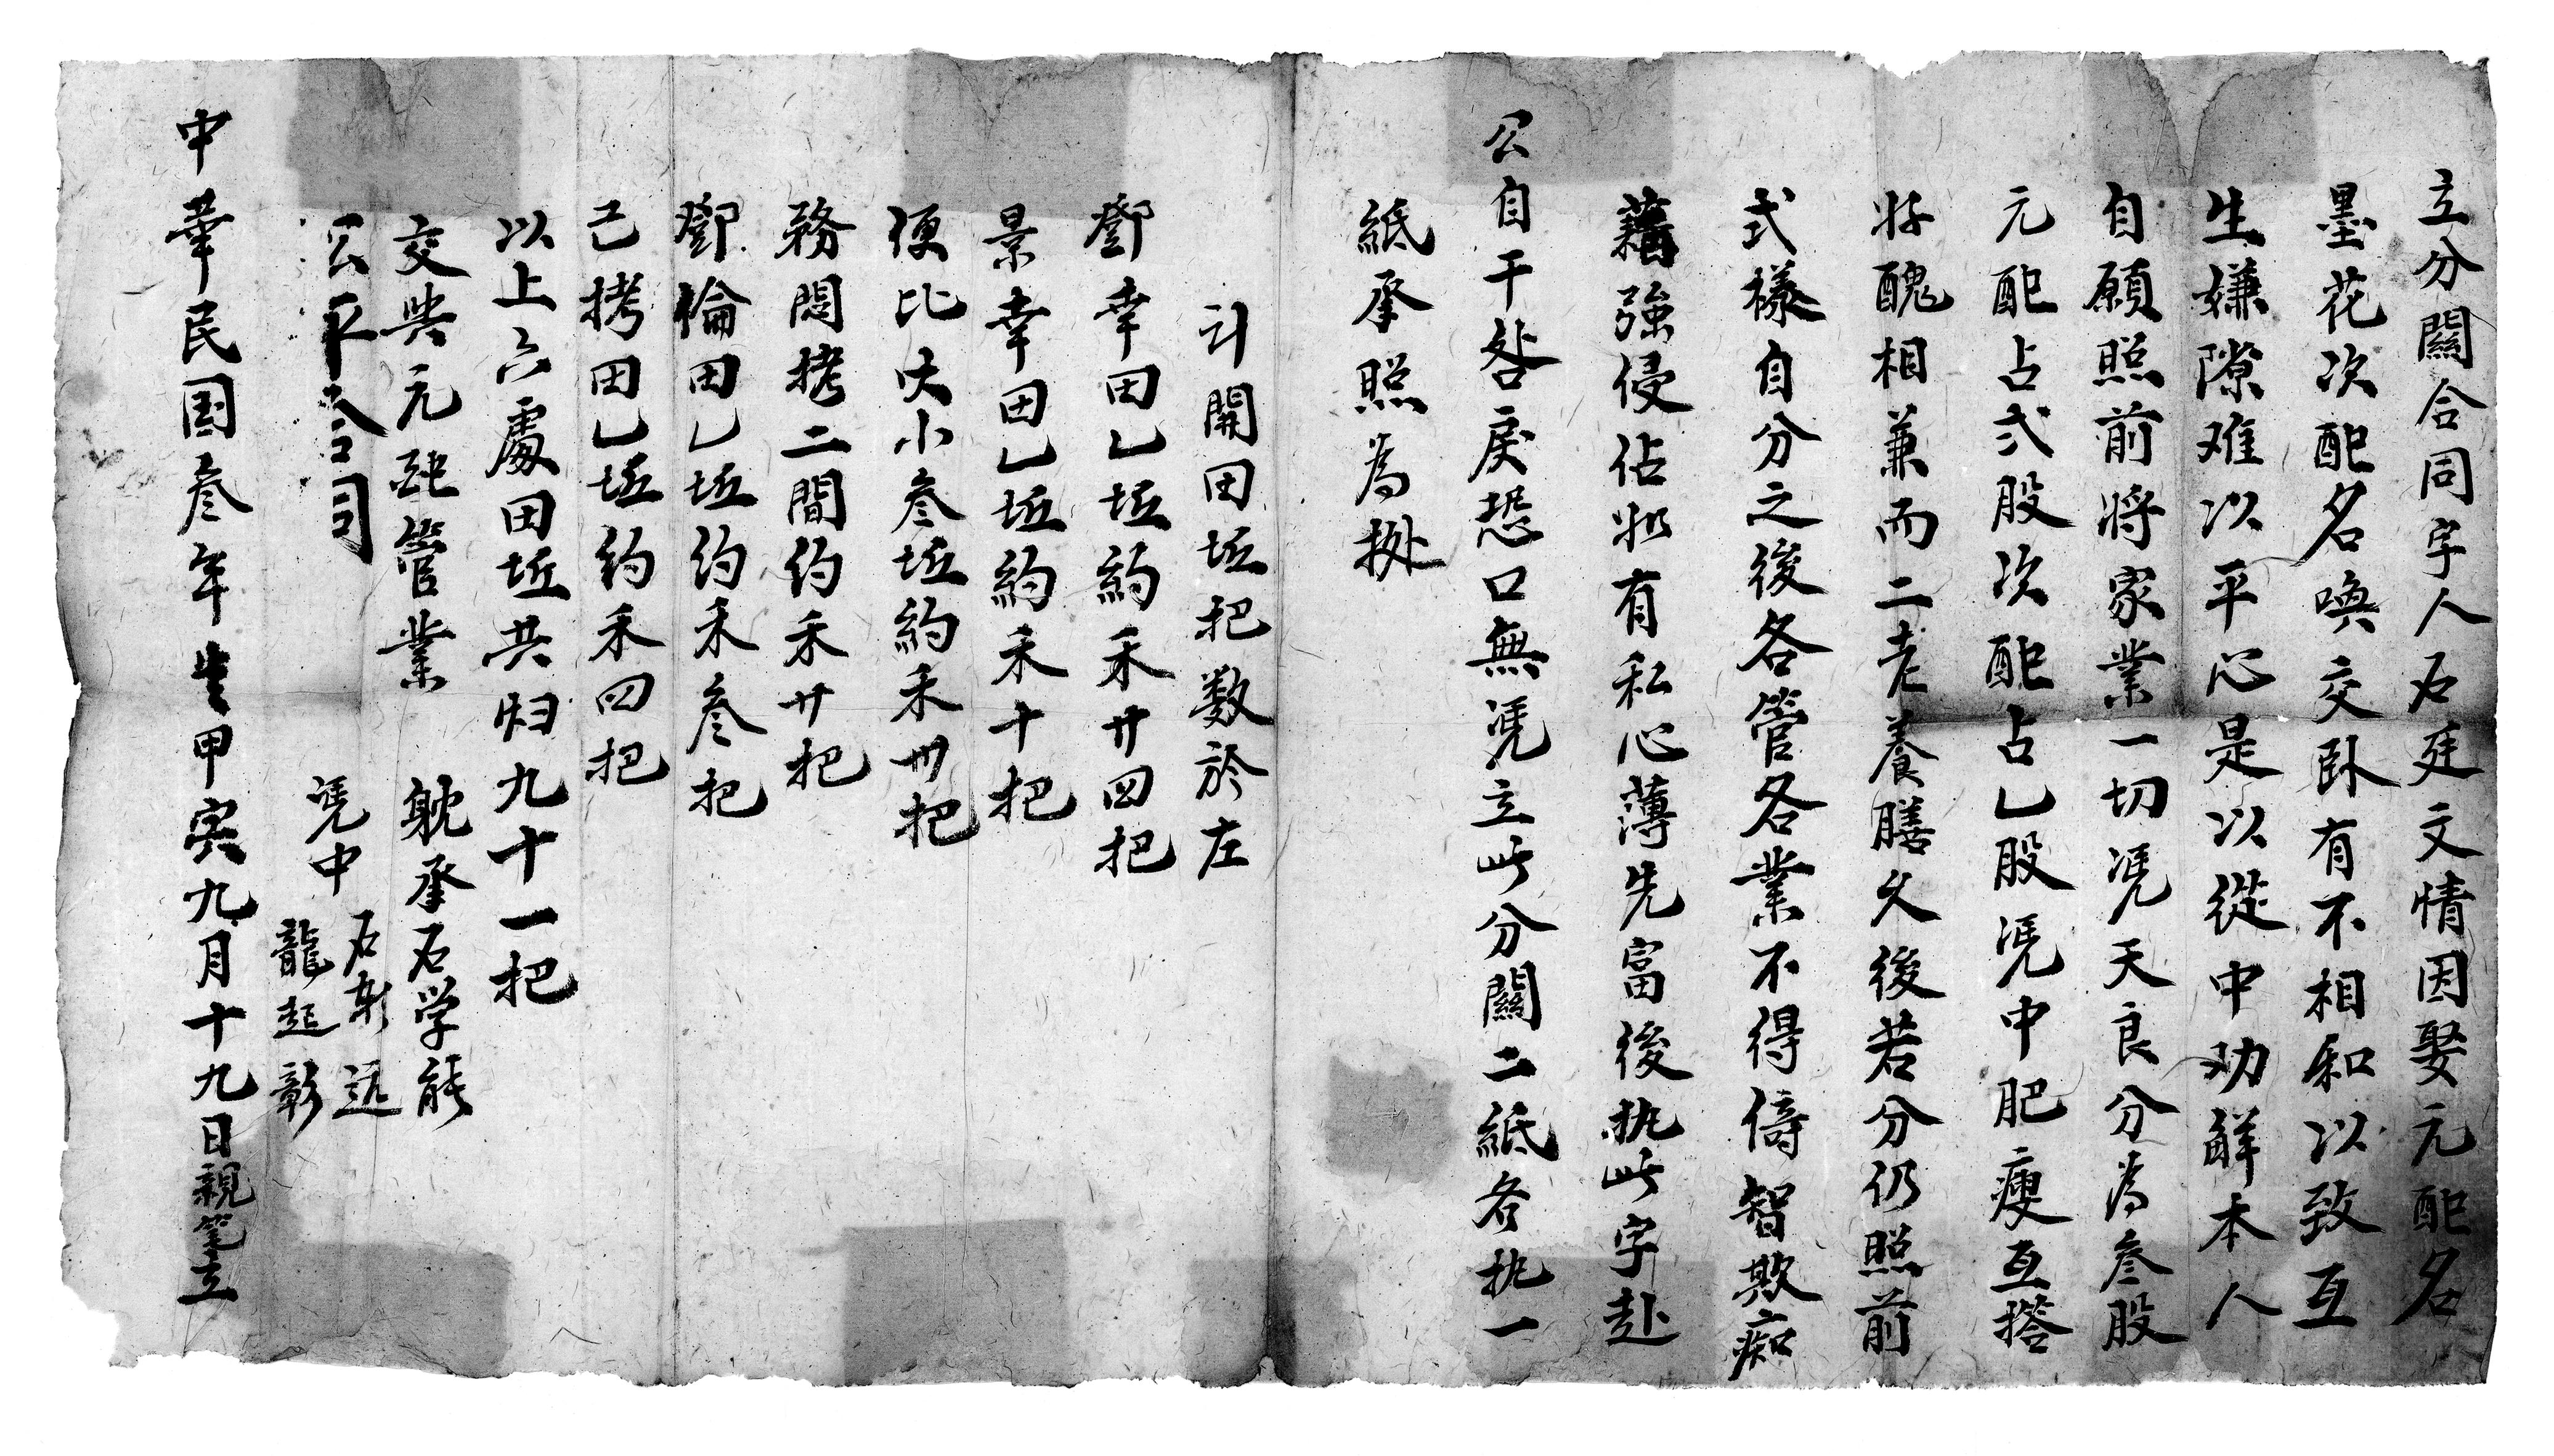 立分關合同字人石廷文情因娶元配名
墨花次配名喚交臥有不相和以致互
生嫌隙难以平心是以從中劝觧本人
自願照前将家業一切凭天良分為叁股
元配占弍股次配占乚股凭中肥瘦互搭
好醜相兼而二老養膳久後若分仍照前
式樣自分之後各管各業不得倚智欺痴
藉強侵佔如有私心薄先富後执此字赴
公自干咎戾恐口無凭立此分關二紙各执一
紙承照為拠
計開田坵把数於左
鄧幸田乚坵約禾廿四把
景幸田乚坵約禾十把
便比大小叁坵約禾卅把
務悶拷二間约禾廿把
鄧倫田乚坵约禾叁把
己拷田乚坵约禾四把
以上六處田坵共归九十一把
交與元配管業
躭承石学能
公平合同
凭中
石渐远
龍起彰
中華民国叁年甲寅九月十九日親筆立